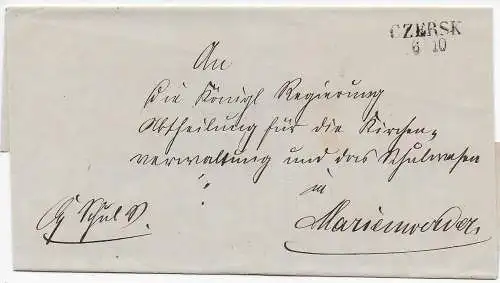 CZERSK
6 10
An
die Königl Regierung
Abtheilung für die Kirchen=
verwaltung und das Schulwesen
in
Marienwerder.
Schul S.